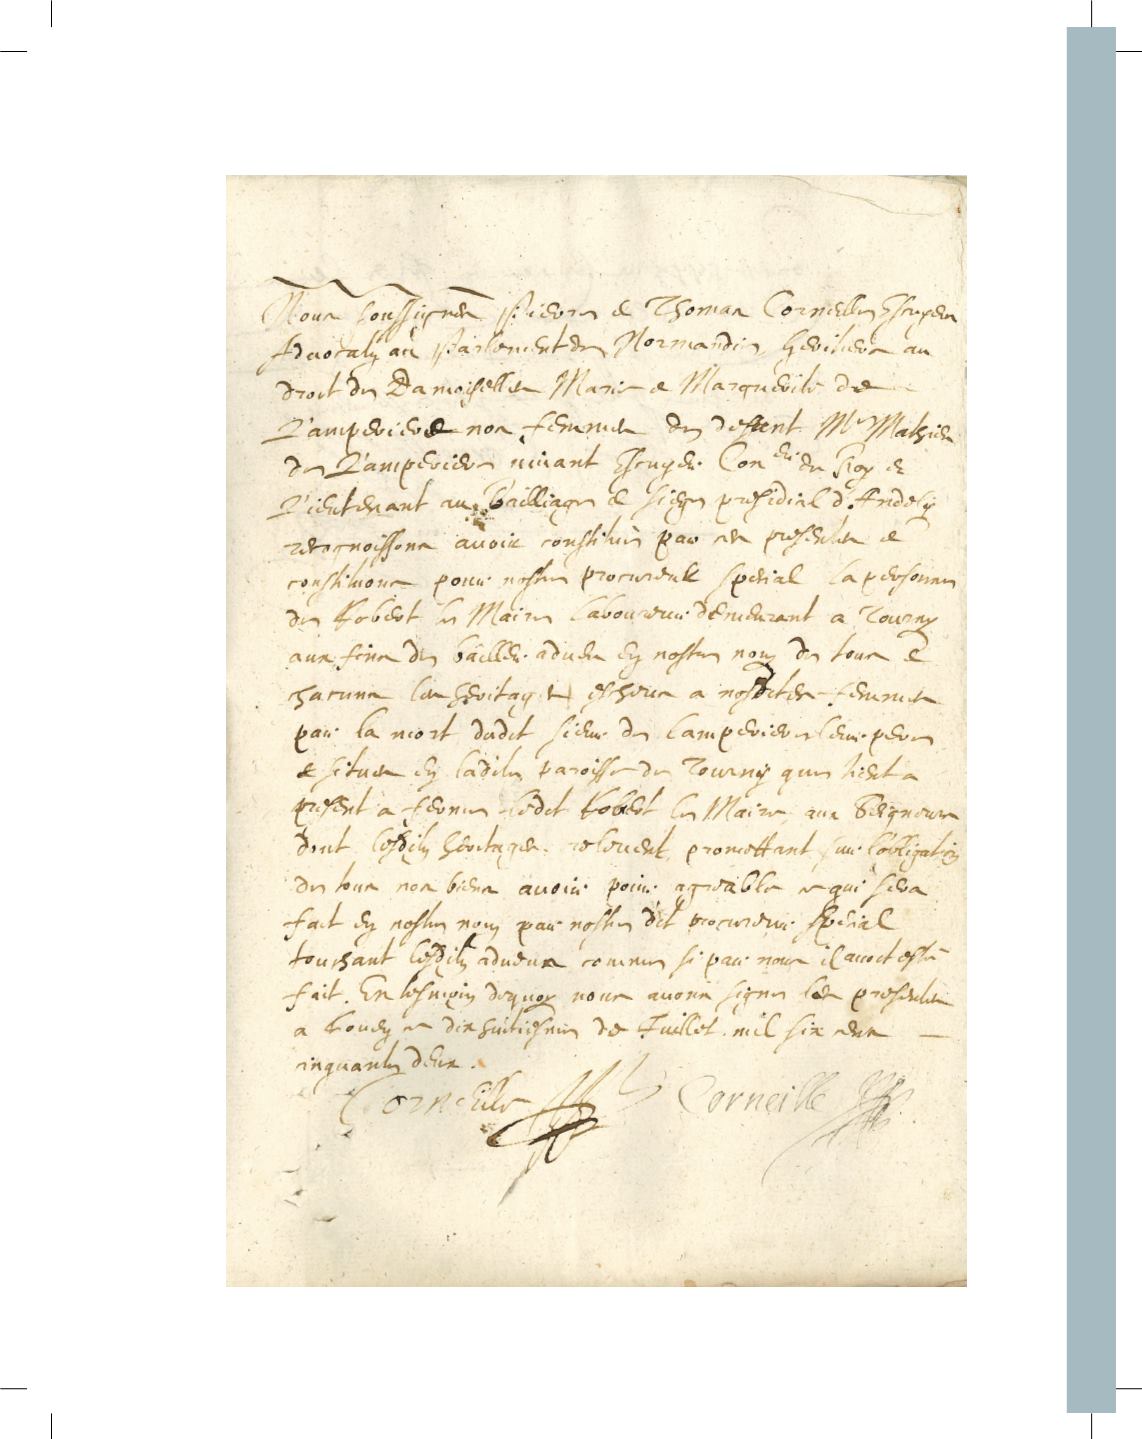 Nous soussignes Pierre & Thomas Corneille Escuyers
Advocatz au Parlement de Normandie, heritiers au
droit des Damoiselles Marie & Marguerite de
Lamperiere nos femmes de defunt Mr Mathieu
de Lamperiere vivant Escuyer Coner du Roy &
Lieutenant au Bailliage & siege presidial d'Andely
recognoissons avoir constitué par ces presentes &
constituons pour nostre procureur special la personne
de Robert le Maire laboureur demeurant a Tourny
aux fins de bailler adveu en nostre nom de tous &
chacuns les heritages escheus a nosdites femmes
par la mort dudit sieur de Lamperiere leur pere
& situes en ladite paroisse de Tourny que tient a
present a ferme ledit Robert le Maire, aux Seigneurs
dont lesditz heritages relevent, promettant sur l'obligation
de tous nos biens avoir pour agreable ce qui sera
fait en nostre nom par nostre dit procureur special
touchant lesditz adveux comme si par nous il avoit esté
fait. En tesmoin dequoy nous avons signé les presentes
a Rouen ce dix huitiesme de Juillet mil six cens
cinquante deux.
Corneille Corneille